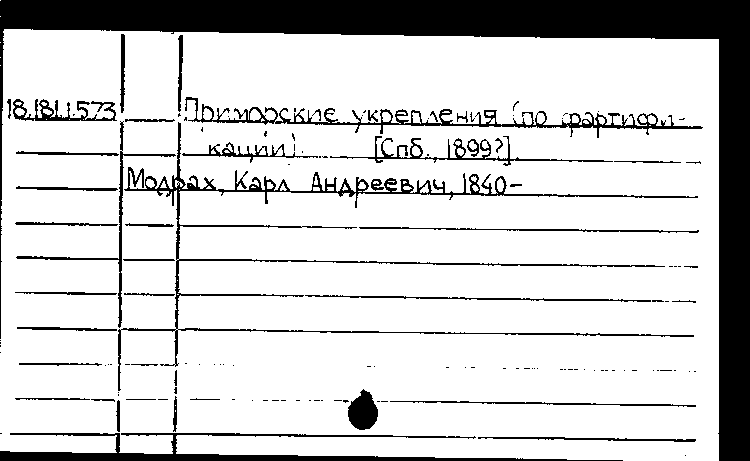 18.181.1.573 Приморские укрепления (по фартифи-
кации). [Спб., 1899?].
Модрах, Карл Андреевич, 1840-